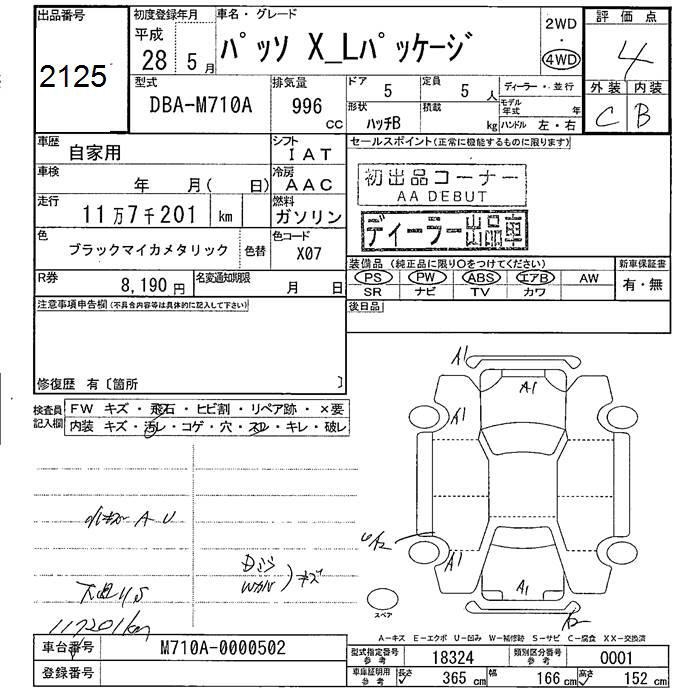 出品番号
2125
初度登録年月
平成
28 年 5 月
車名・グレード
パッソ X_Lパッケージ
2WD
・
4WD
評価点
4
外装 内装
C B
型式
DBA-M710A
排気量
996
CC
ドア
5
定員
5 人
ディーラー・並行
形状
ハッチB
積載
kg
モデル年式 年
ハンドル 左・右
車歴
自家用
シフト
IAT
車検
年 月( 日)
冷房
AAC
走行
11万7千201 km
燃料
ガソリン
色
ブラックマイカメタリック
色替
色コード
X07
R券
8,190 円
名変通知期限
月 日
セールスポイント(正常に機能するものに限ります)
初出品コーナー
AA DEBUT
ディーラー出品車
装備品(純正品に限り○をつけてください)
PS PW ABS エアB AW
SR ナビ TV カワ
新車保証書
有・無
注意事項申告欄(不具合内容等は具体的に記入して下さい)
後日品
修復歴 有〔箇所 〕
検査員記入欄
FW キズ・飛石・ヒビ割・リペア跡・×要
内装 キズ・汚レ・コゲ・穴・スレ・キレ・破レ
A1
A1
A1
A2
A1
A1
A U
キズ
117201km
スペア
A-キズ E-エクボ U-凹み W-補修跡 S-サビ C-腐食 XX-交換済
車台番号
M710A-0000502
登録番号
型式指定番号
参考
18324
類別区分番号
参考
0001
車庫証明用
参考
長さ
365 cm
幅
166 cm
高さ
152 cm